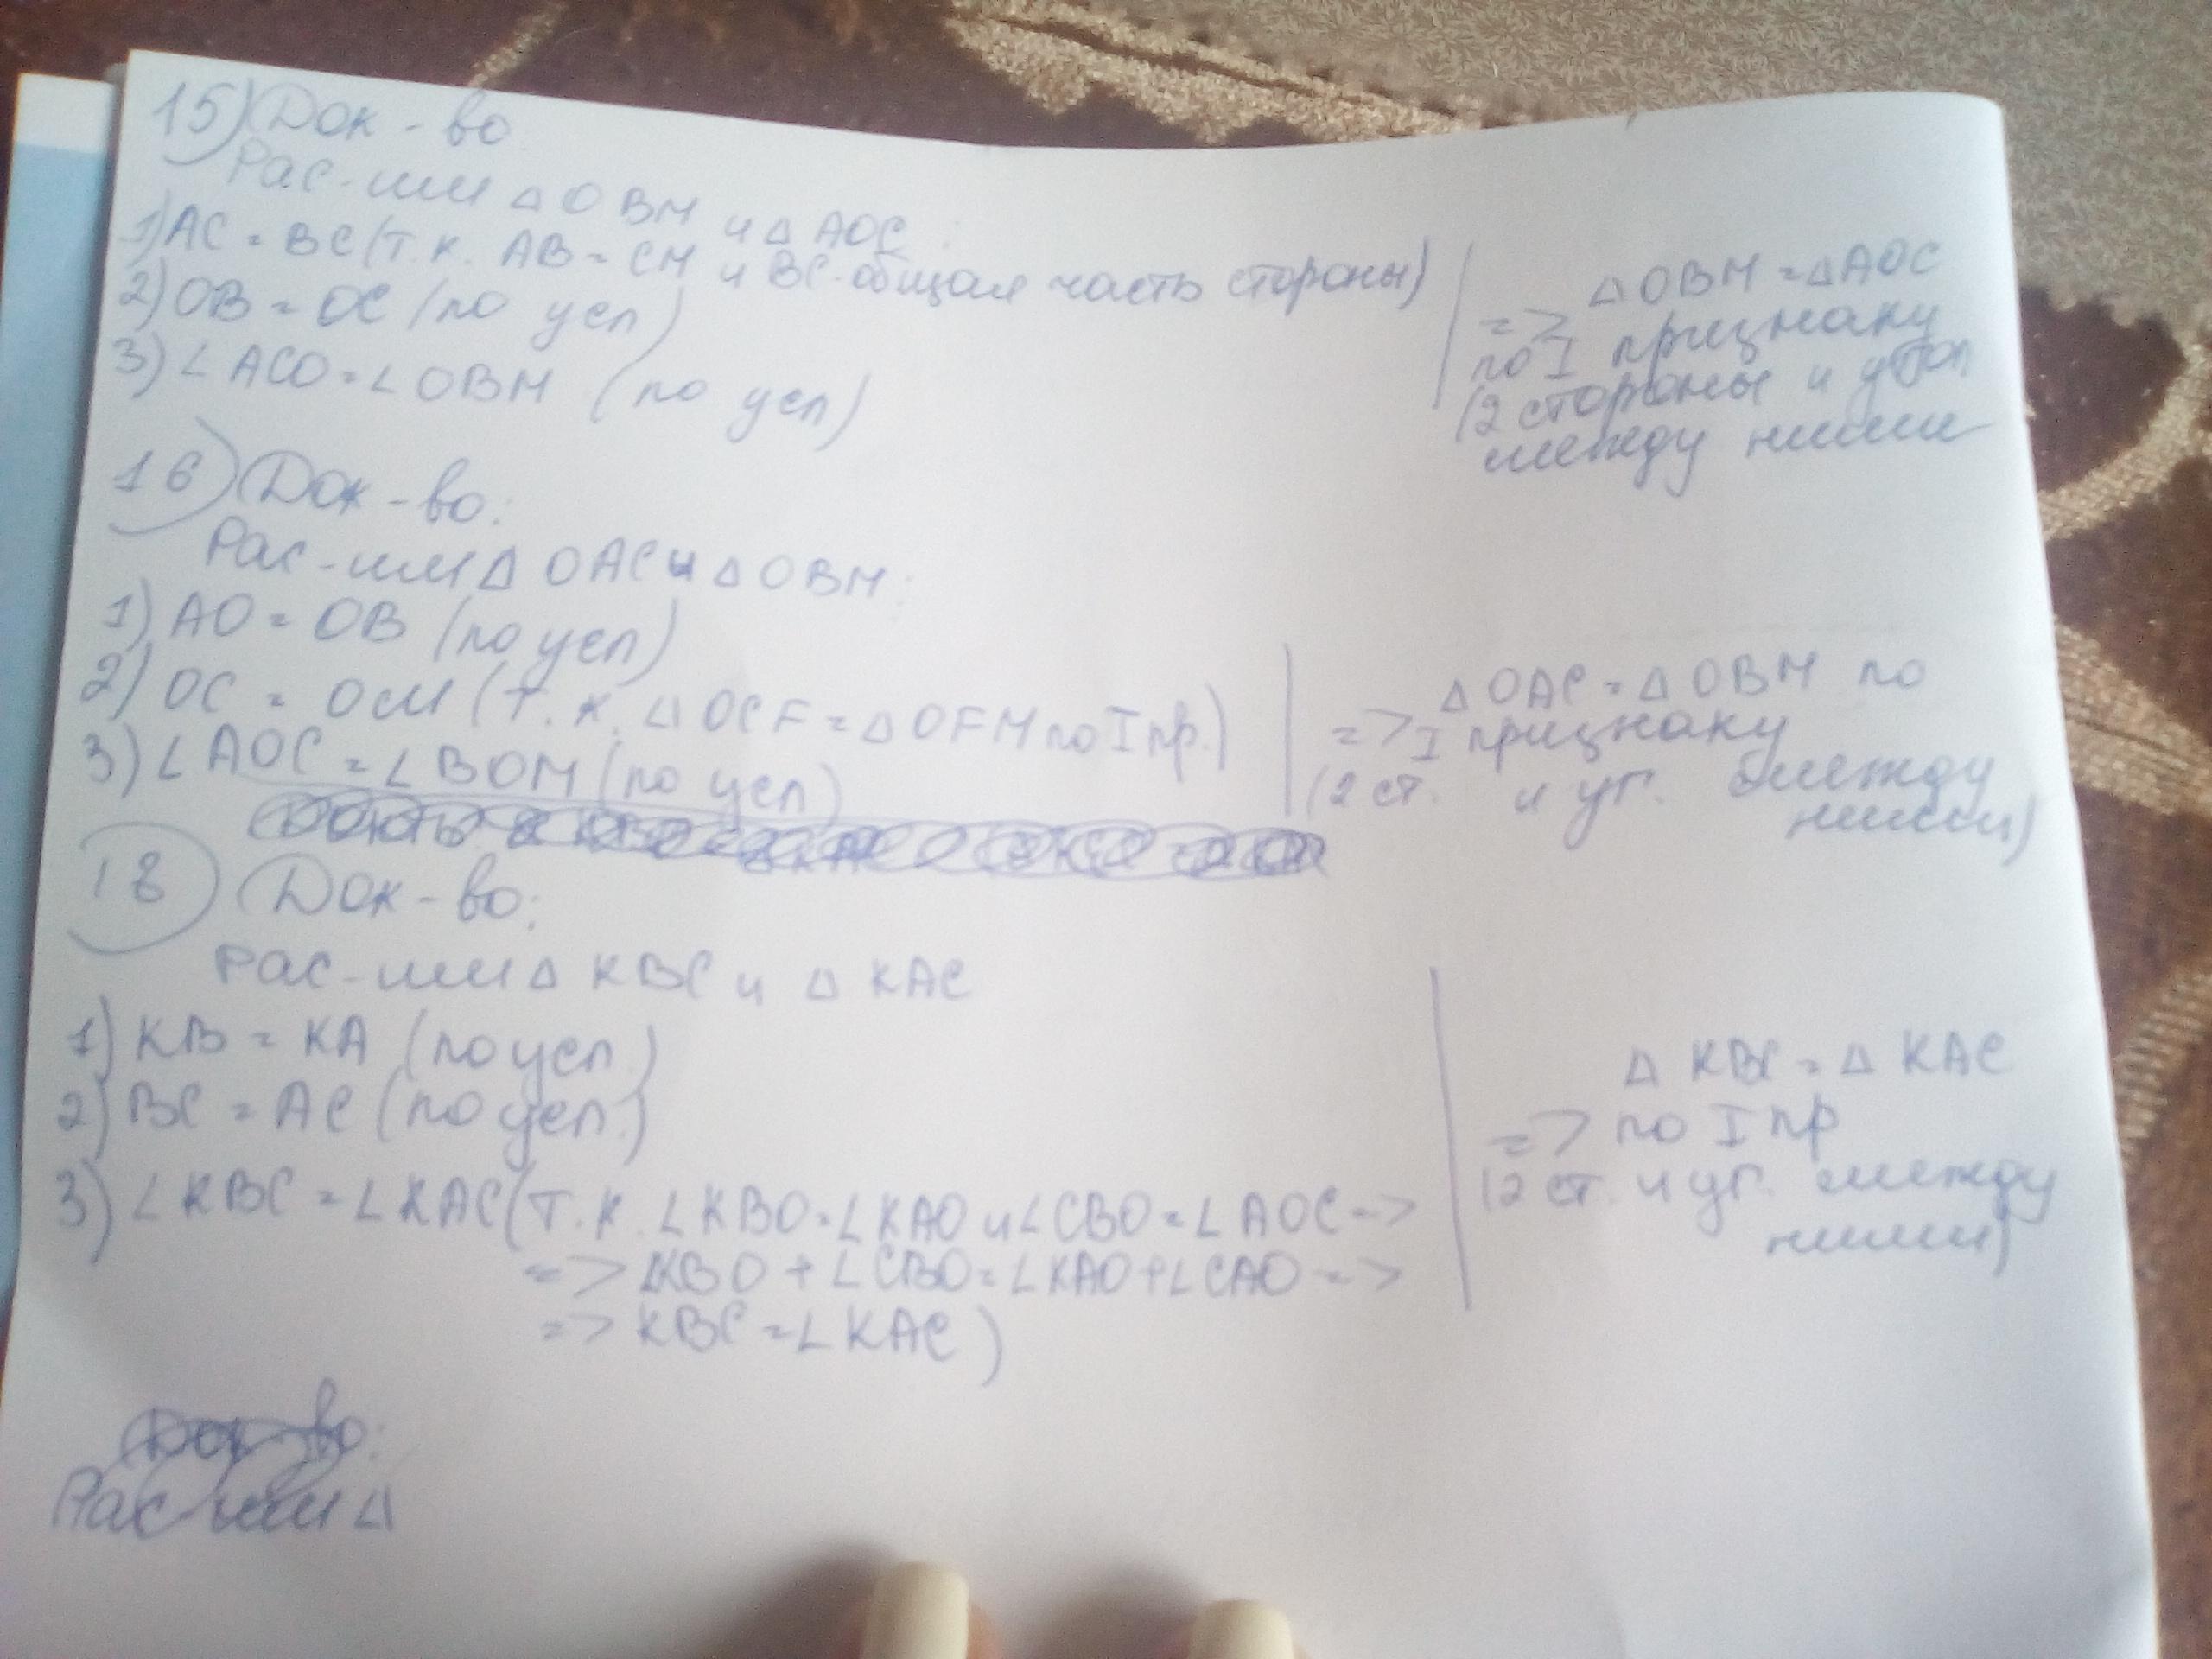 15) Док-во
Рас-им △ OBM и △ AOC:
1) AC = BC (т.к. AB = CM и BC общая часть стороны)
2) OB = OC (по усл)
3) ∠ACO = ∠OBM (по усл)
△OBM = △AOC
=> по I признаку
(2 стороны и угол
между ними
16) Док-во:
Рас-им △ OAC и △ OBM:
1) AO = OB (по усл)
2) OC = OM (т.к. △OCF = △OFM по I пр.)
3) ∠AOC = ∠BOM (по усл)
△OAC = △OBM по
=> I признаку
(2 ст. и уг. между
ними)
18) Док-во:
Рас-им △ KBC и △ KAC
1) KB = KA (по усл.)
2) BC = AC (по усл.)
3) ∠KBC = ∠KAC (т.к. ∠KBO = ∠KAO и ∠CBO = ∠AOC =>
=> ∠KBO + ∠CBO = ∠KAO + ∠CAO =>
=> KBC = ∠KAC)
△ KBC = △ KAC
=> по I пр
(2 ст. и уг. между
ними)
Док-во:
Рас-им △